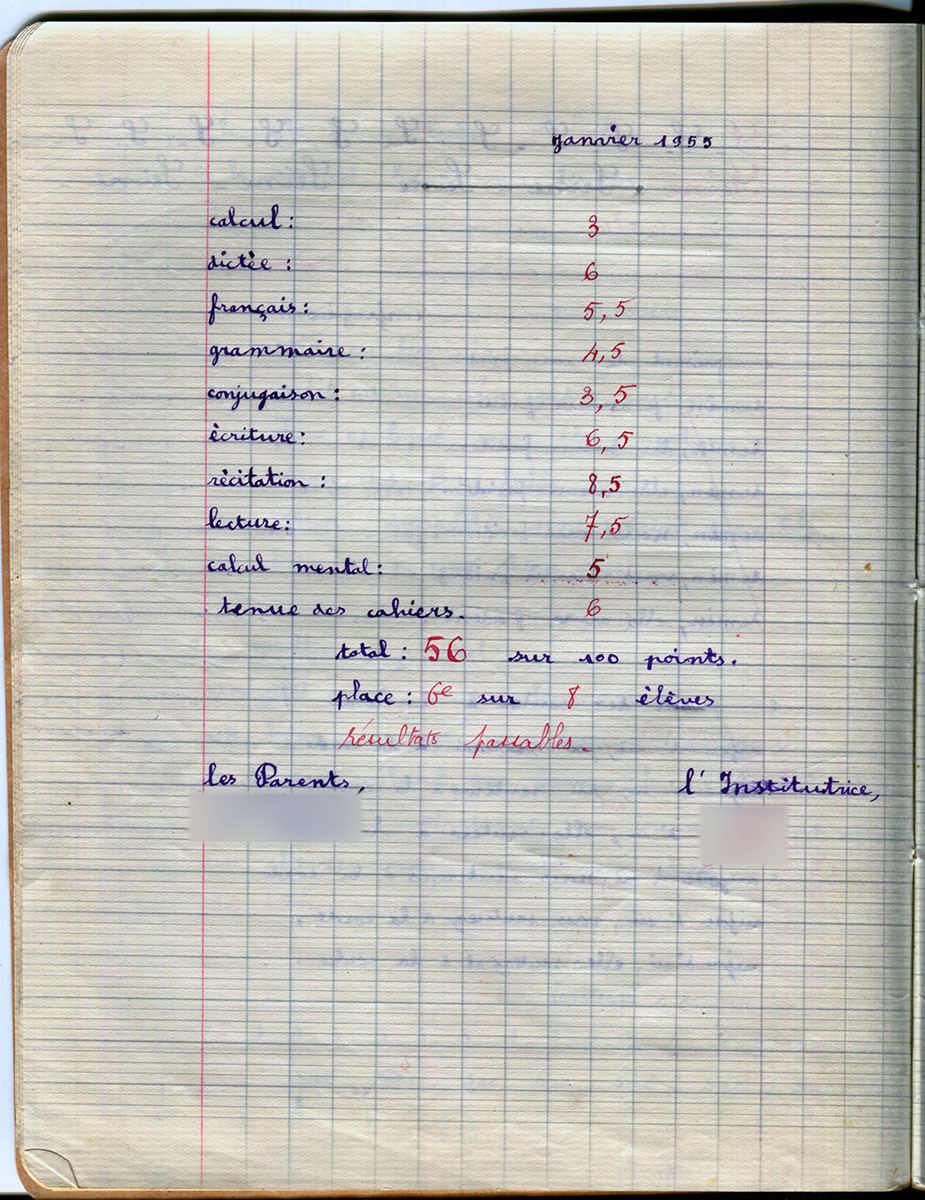 janvier 1955
calcul : 3
dictée : 6
français : 5,5
grammaire : 4,5
conjugaison : 3,5
écriture : 6,5
récitation : 8,5
lecture : 7,5
calcul mental : 5
tenue des cahiers. 6
total : 56 sur 100 points.
place : 6e sur 8 élèves
résultats passables.
les Parents, l'Institutrice,